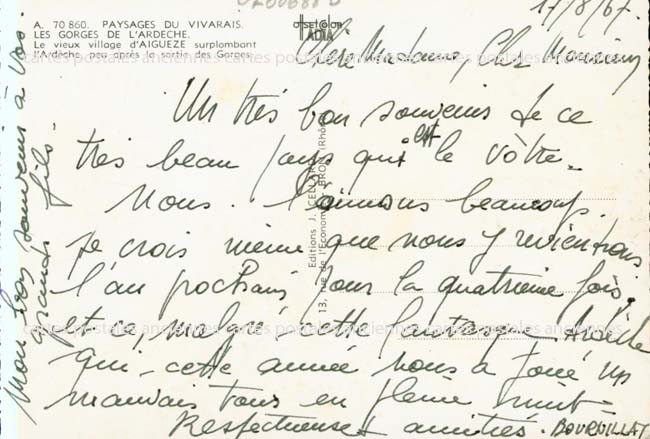 A. 70 860. PAYSAGES DU VIVARAIS.
LES GORGES DE L'ARDECHE.
Le vieux village d'AIGUEZE surplombant
l'Ardèche peu après la sortie des Gorges
offset color
IADIA
17/8/67.
Chère Madame, Cher Monsieur
Un très bon souvenir de ce
très beau pays qui est le vôtre.
Nous l'aimons beaucoup.
Je crois même que nous y reviendrons
l'an prochain pour la quatrième fois,
et ce, malgré cette fantasque Ardèche
qui cette année nous a joué un
mauvais tour en pleine nuit.
Respectueuses amitiés. BOURUILLAT
Mon bon souvenir à vos
grands fils.
Editions J. CELLARD
13, rue de l'Economie - BRON (Rhône)
cartes postales anciennes cartes postales anciennes cartes postales anciennes
cartes postales anciennes cartes postales anciennes cartes postales anciennes